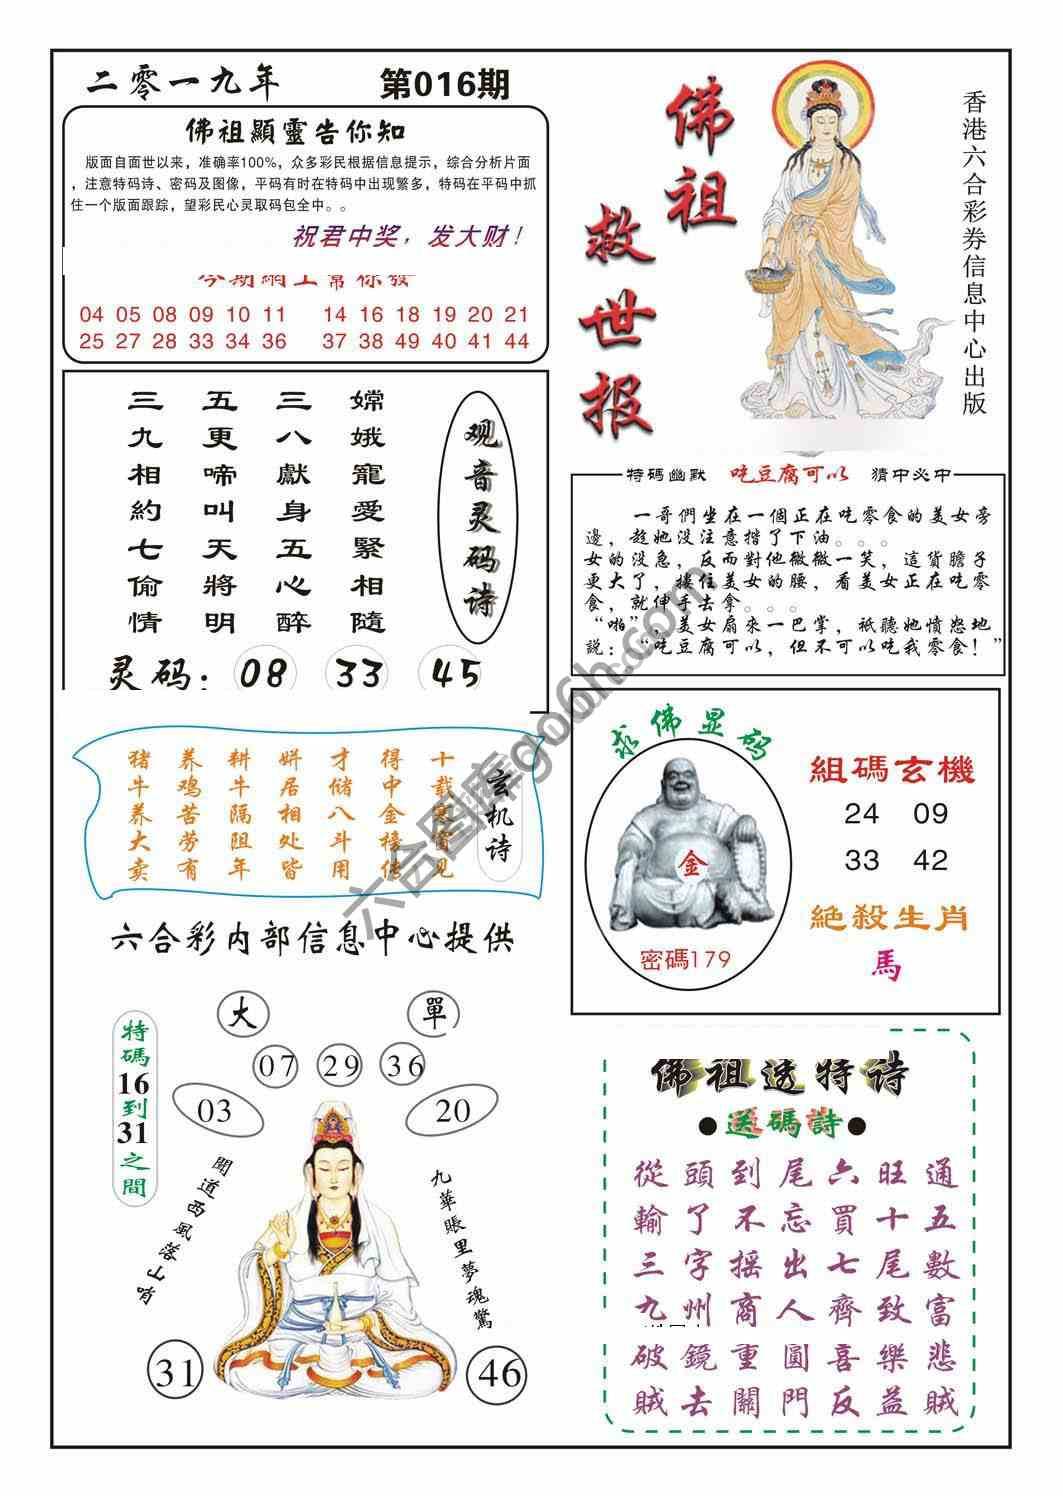 二零一九年
第016期
佛祖顯靈告你知
版面自面世以来，准确率100%，众多彩民根据信息提示，综合分析片面
，注意特码诗、密码及图像，平码有时在特码中出现繁多，特码在平码中抓
住一个版面跟踪，望彩民心灵取码包全中。。
祝君中奖，发大财！
04 05 08 09 10 11 14 16 18 19 20 21
25 27 28 33 34 36 37 38 49 40 41 44
佛祖
救世报
香港六合彩券信息中心出版
嫦娥寵愛緊相隨
三八獻身五心醉
五更啼叫天將明
三九相約七偷情
观音灵码诗
灵码：08 33 45
特码幽默 吃豆腐可以 猜中必中
一哥們坐在一個正在吃零食的美女旁
邊，趁她没注意揩了下油。。。
女的没急，反而對他微微一笑，這貨膽子
更大了，摟住美女的腰，看美女正在吃零
食，就伸手去拿。。。
“啪”，美女扇來一巴掌，祇聽她憤怒地
説：“吃豆腐可以，但不可以吃我零食！”
玄机诗
十载寒窗见
得中金榜
才储八斗用
姘居相处皆
耕牛隔阻年
养鸡苦劳有
猪牛养大卖
六合彩内部信息中心提供
求佛显码
金
密碼179
組碼玄機
24 09
33 42
絕殺生肖
馬
大 單
07 29 36
03 20
特碼16到31之間
聞道西風落山哨
九華賬里夢魂驚
31 46
佛祖透特诗
●送碼詩●
從頭到尾六旺通
輸了不忘買十五
三字摇出七尾數
九州商人齊致富
破鏡重圓喜樂悲
賊去關門反益賊
六合图库go66h.com